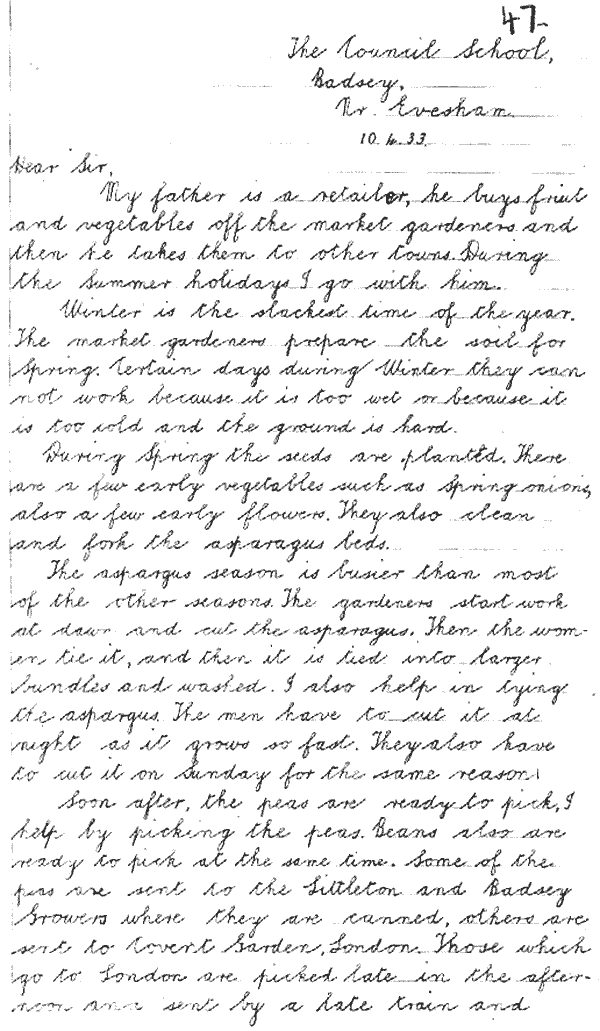 47
The Council School,
Badsey,
Nr. Evesham.
10.4.33.
Dear Sir,
My father is a retailer, he buys fruit
and vegetables off the market gardeners and
then he takes them to other towns. During
the Summer holidays I go with him.
Winter is the slackest time of the year.
The market gardeners prepare the soil for
Spring. Certain days during Winter they can
not work because it is too wet or because it
is too cold and the ground is hard.
During Spring the seeds are planted. There
are a few early vegetables such as Spring onions,
also a few early flowers. They also clean
and fork the asparagus beds.
The aspargus season is busier than most
of the other seasons. The gardeners start work
at dawn and cut the asparagus. Then the wom-
en tie it, and then it is tied into larger
bundles and washed. I also help in tying
the aspargus. The men have to cut it at
night as it grows so fast. They also have
to cut it on Sunday for the same reason.
Soon after, the peas are ready to pick, I
help by picking the peas. Beans also are
ready to pick at the same time. Some of the
peas are sent to the Littleton and Badsey
Growers where they are canned, others are
sent to Covent Garden, London. Those which
go to London are picked late in the after-
noon and sent by a late train and